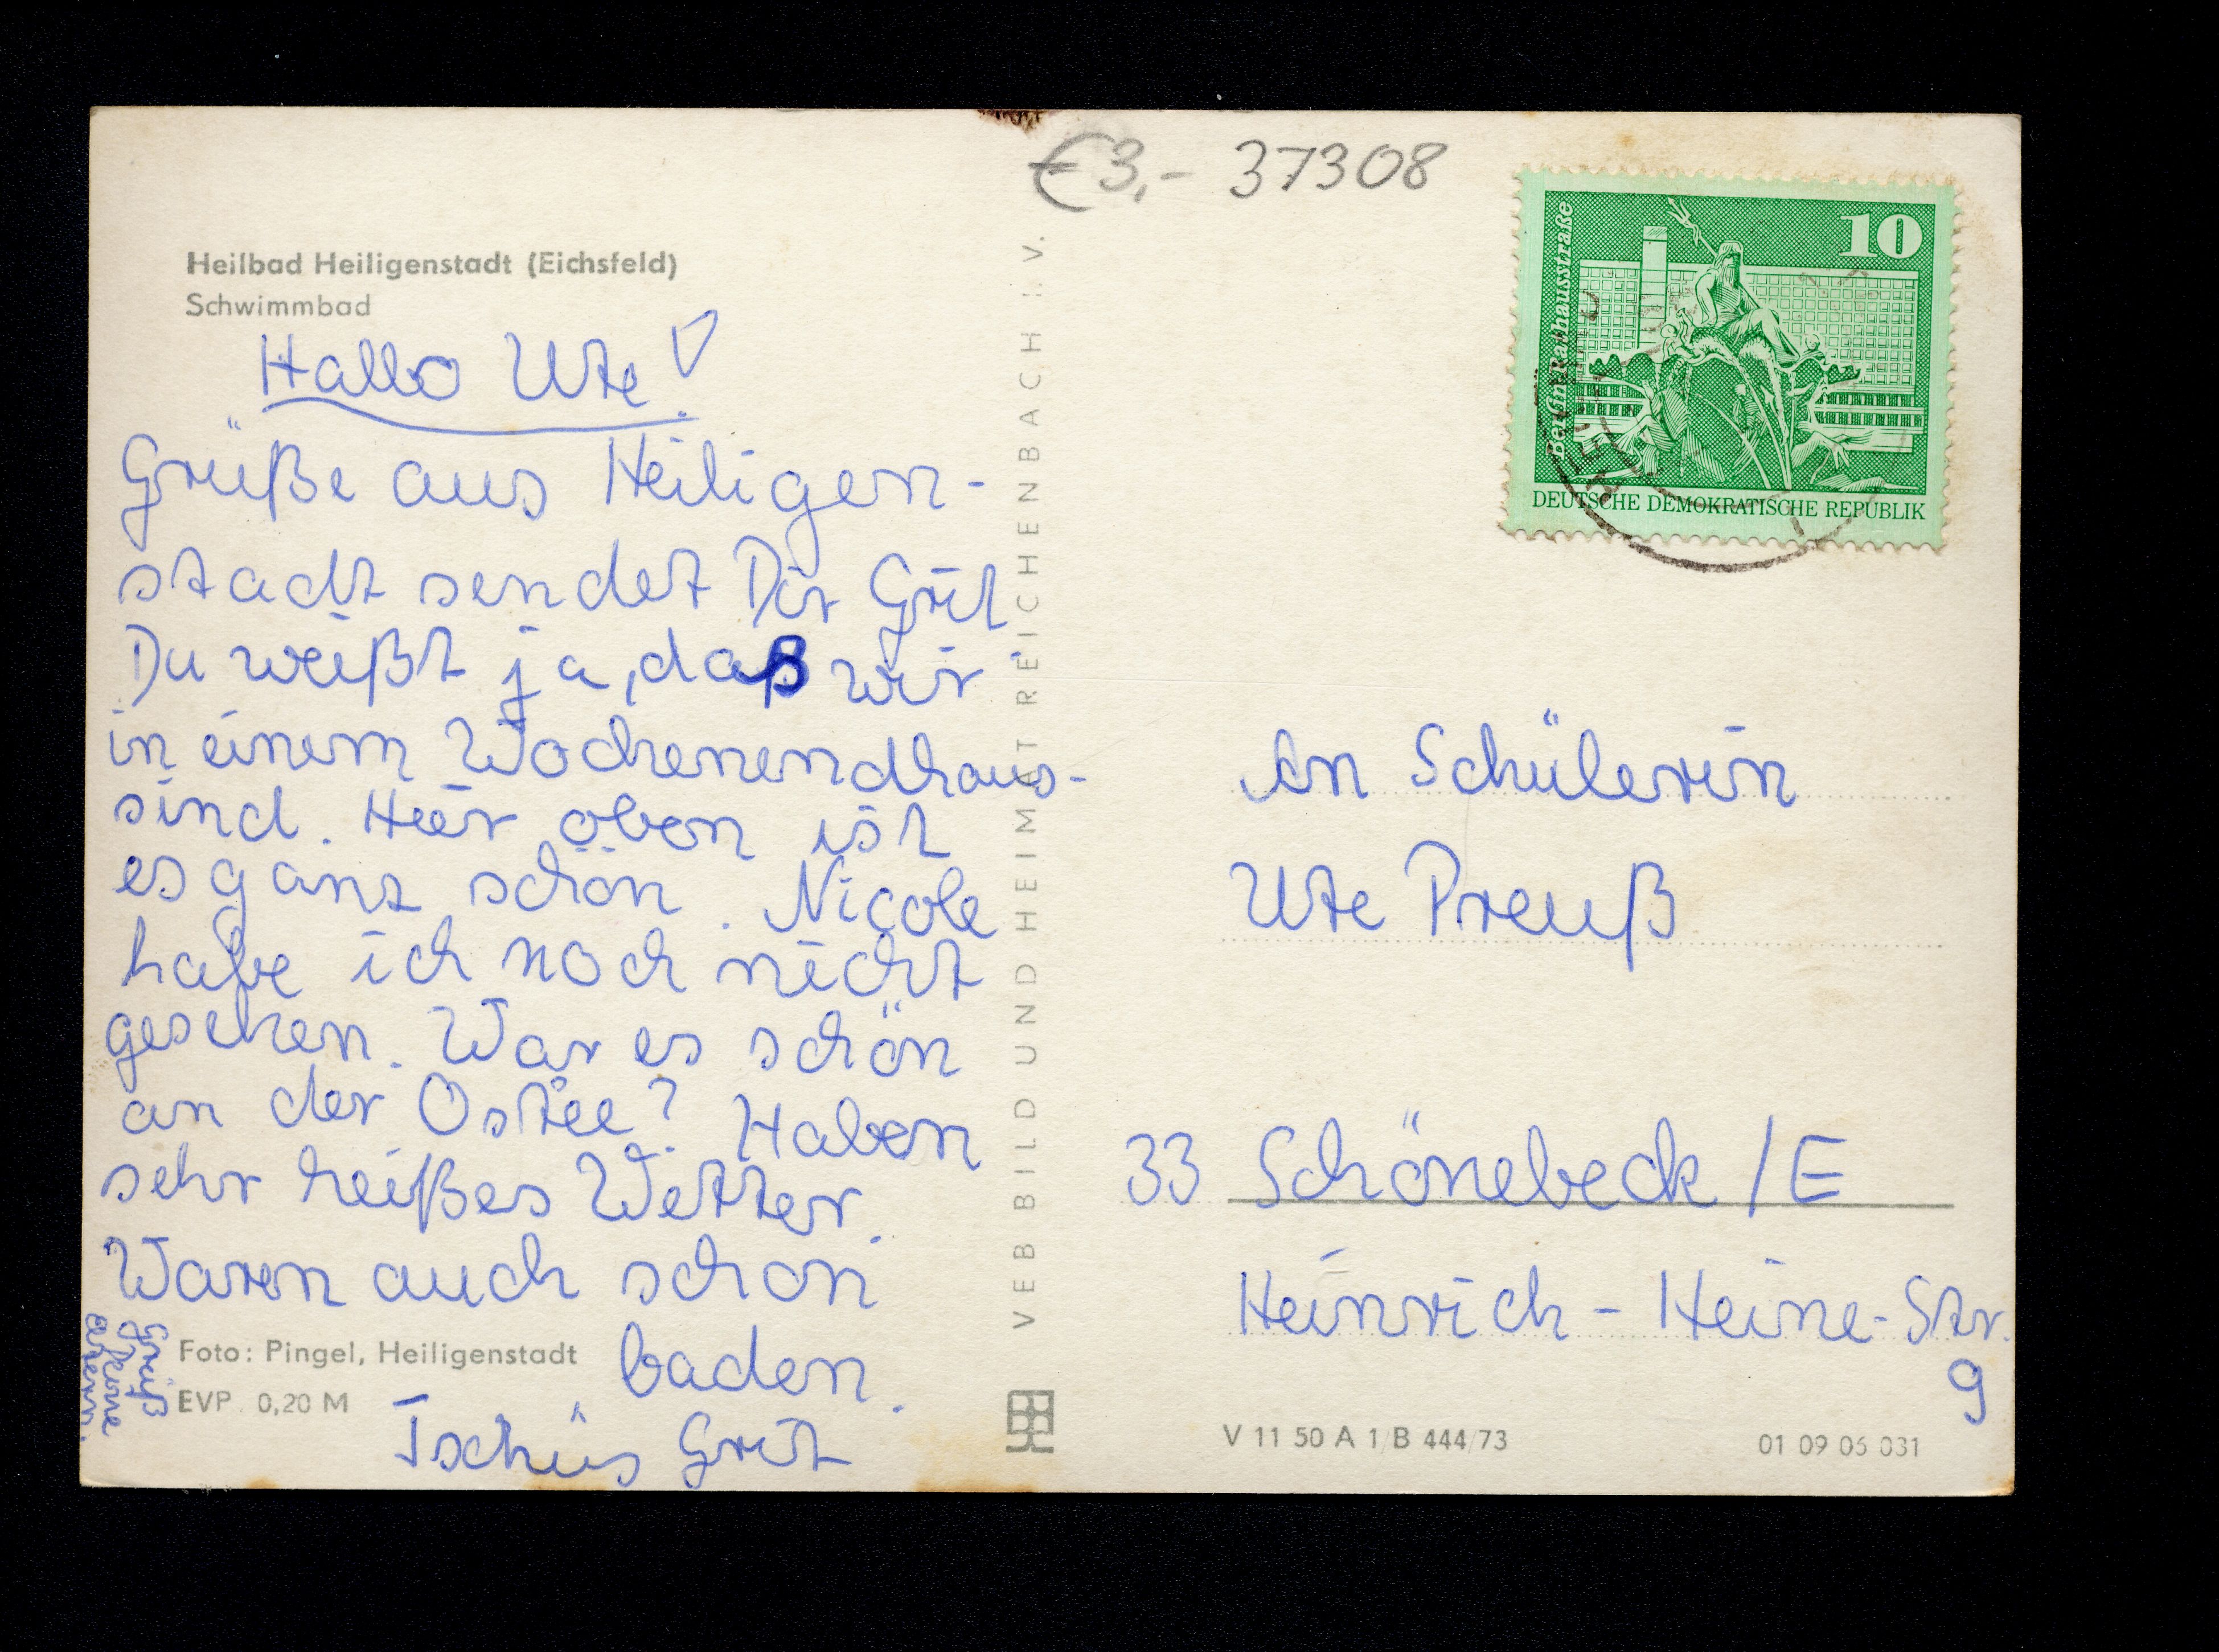 €3,- 37308
Heilbad Heiligenstadt (Eichsfeld)
Schwimmbad
Hallo Ute!
Grüße aus Heiligen-
stadt sendet Dir Grit.
Du weißt ja, daß wir
in einem Wochenendhaus-
sind. Hier oben ist
es ganz schön. Nicole
habe ich noch nicht
gesehen. War es schön
an der Ostsee? Haben
sehr heißes Wetter.
Waren auch schon
baden.
Tschüs Grit
Grüß
Deine
Eltern.
Foto: Pingel, Heiligenstadt
EVP 0,20 M
VEB BILD UND HEIMAT REICHENBACH I. V.
10
Berlin Rathausstraße
DEUTSCHE DEMOKRATISCHE REPUBLIK
An Schülerin
Ute Preuß
33 Schönebeck /E
Heinrich-Heine-Str.
9
V 11 50 A 1/B 444/73
01 09 06 031